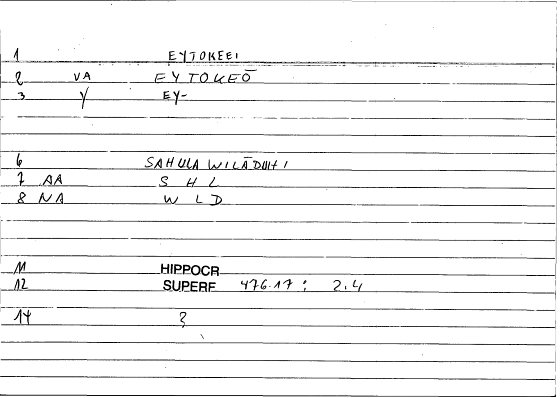 1 EYTOKEEI
2 VA EYTOKEŌ
3 Y EY-
6 SAHULA WILĀDUHI
7 AA S H L
8 NA W L D
11 HIPPOCR
12 SUPERF 476.17 : 2.4
14 ?